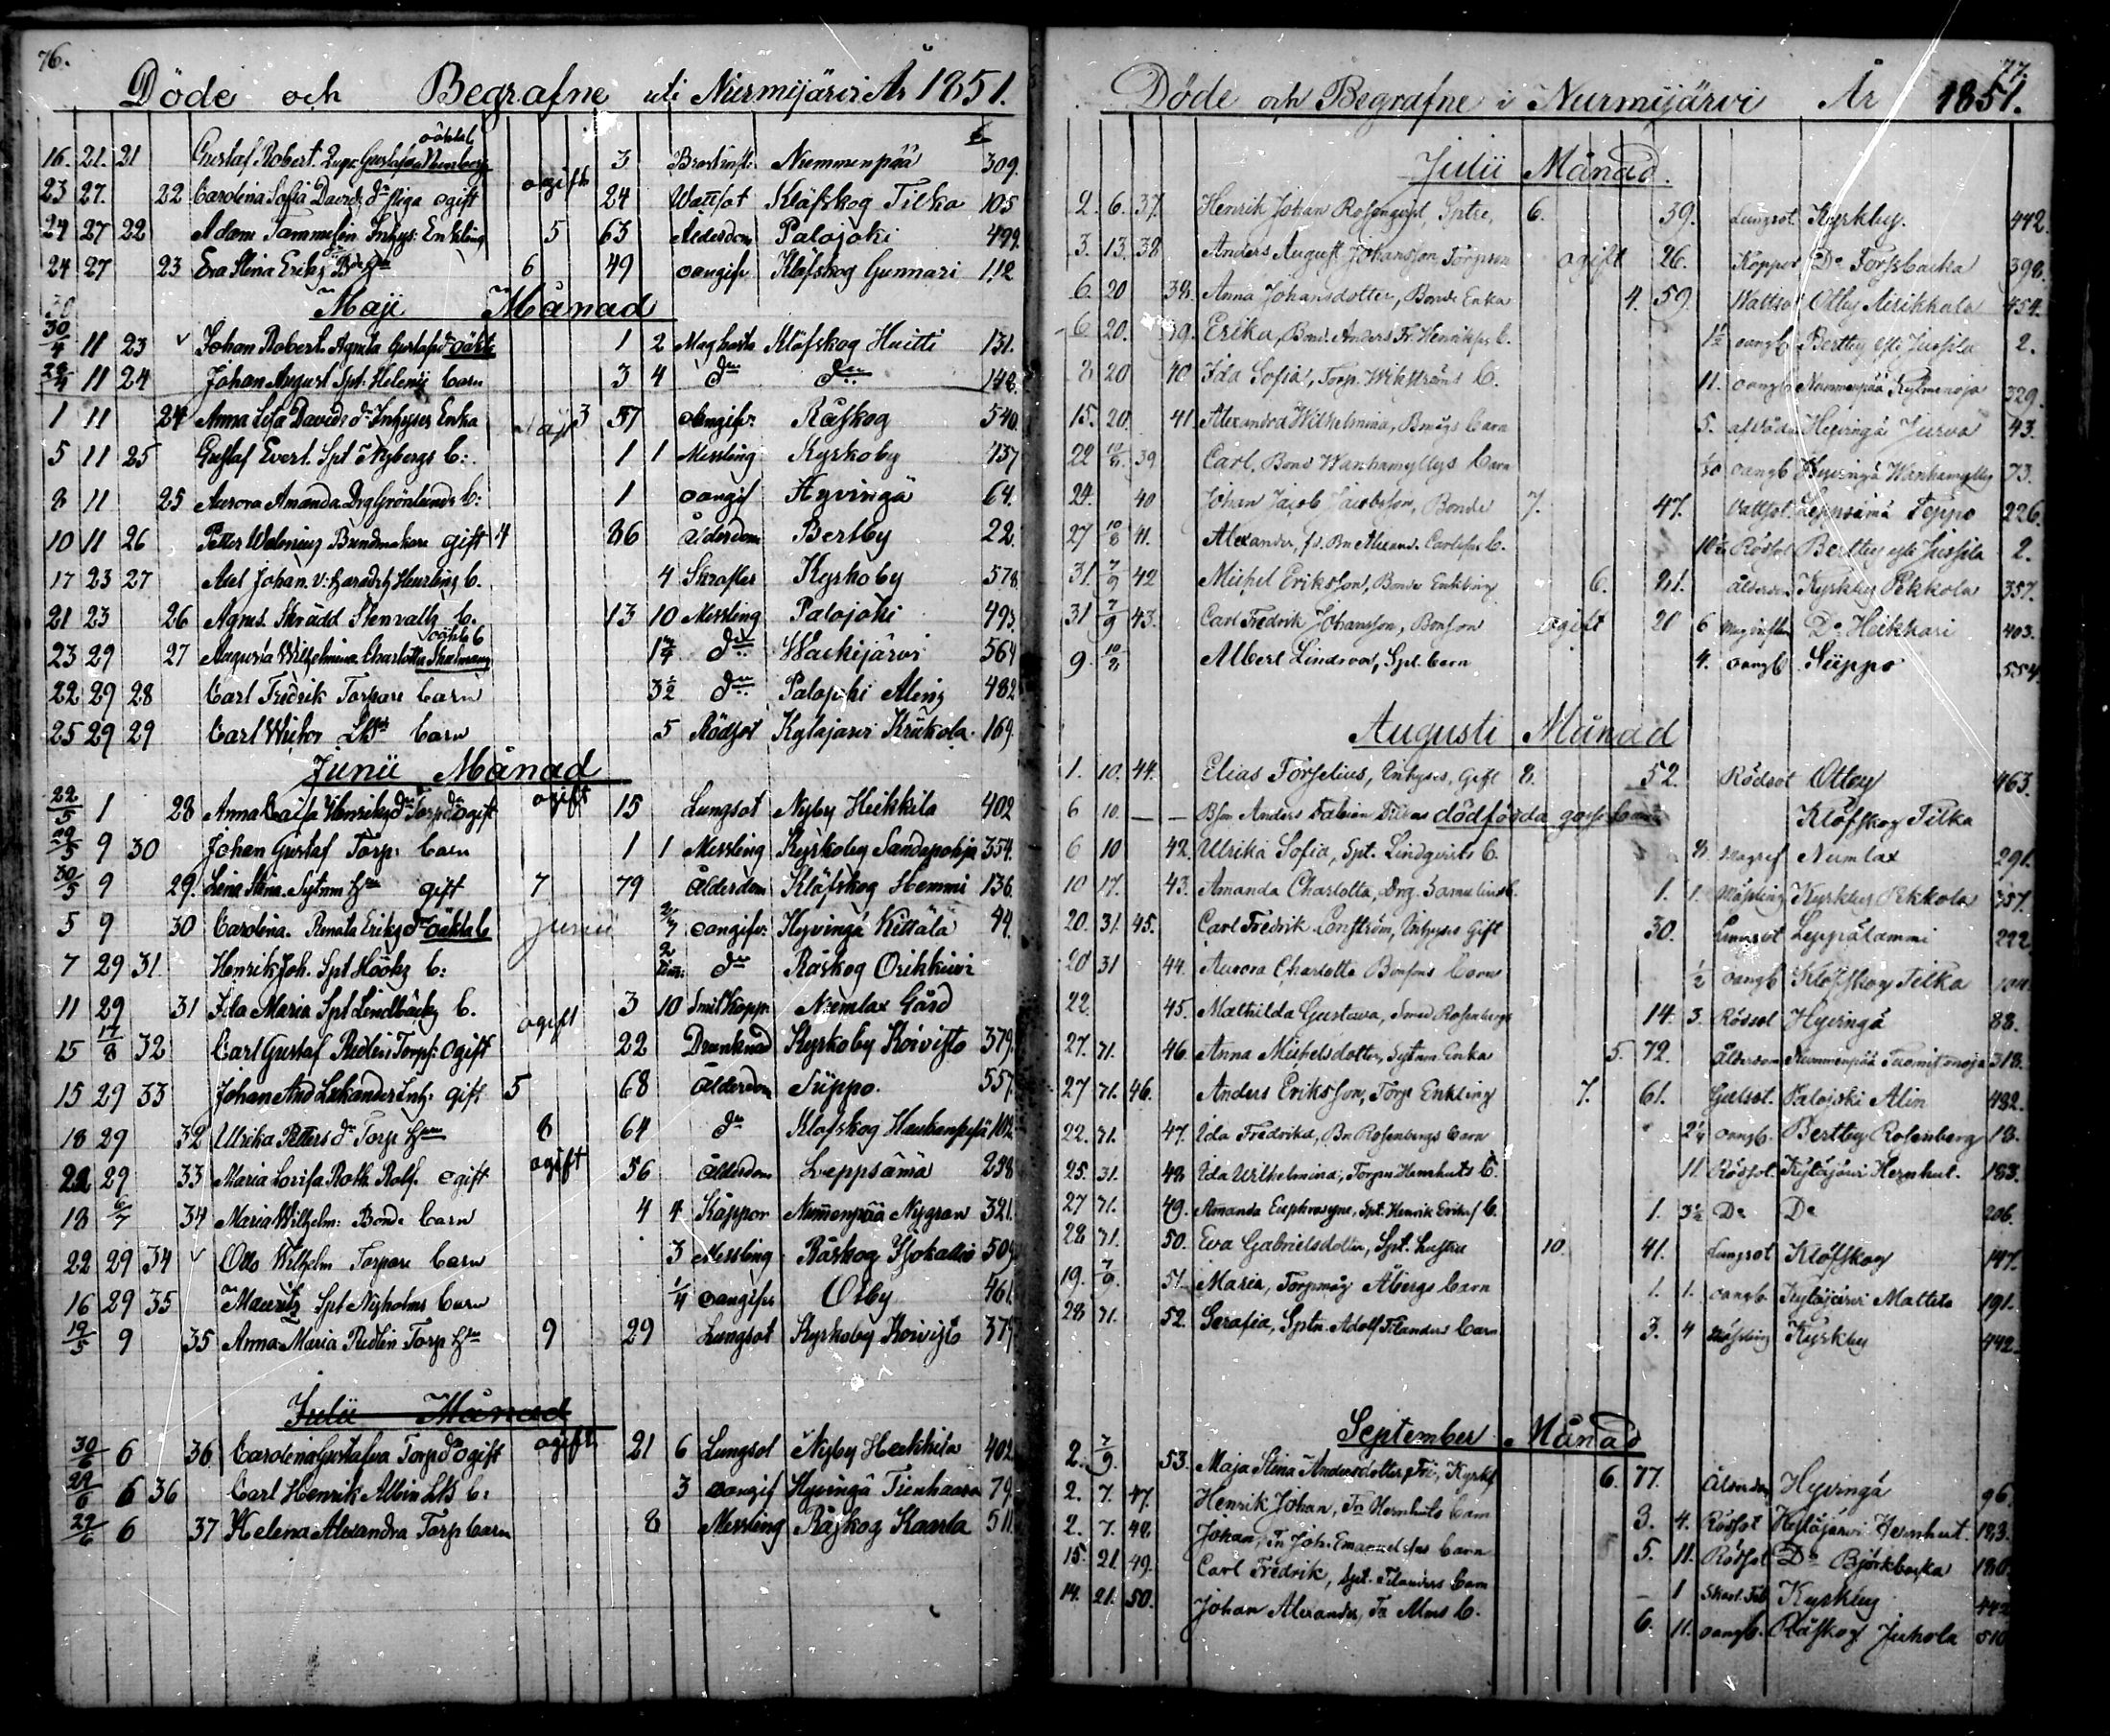 76.
Döde och Begrafne uti Nurmijärvi År 1851.
16. 21. 21 Gustaf Robert. Gustafva oäkta b 3 Bröstinfl: Nummenpää 309.
23 27. 22 Carolina Sofia Davids dr Piga ogift ogift 24 Wattsot Kläfskog Tilka 105
24 27 22 Adam Tammelin Inhys: Enkling 5 63 Ålderdom Palojoki 499.
24 27 23 Eva Stina Eriks dr 6 49 oangifv. Kläfskog Gunnari 112
Maji Månad
30/4 11 23 Johan Robert. Agneta Gustafsdr oäkta 1 2 Mag hosta Kläfskog Huitti 131.
28/4 11 24 Johan August Spt: Helenii barn 3 4 dn dn 148.
1 11 24 Anna Lisa Davids dr Inhyses Enka 3 57 oangifv: Råskog 540.
5 11 25 Gustaf Evert. Spt Nybergs b: 1 1 Messling Kyrkoby 437
8 11 25 Aurora Amanda Drg Grönlunds b: 1 oangif Hyvingä 64.
10 11 26 Petter Walenius Bundmakare gift 4 86 Ålderdom Bertby 22.
17 23 27 Axel Johan. v: Häradsh Heurlins b. 4 Skrofler Kyrkoby 578.
21 23 26 Agnes. Skrädd Stenvalls b. 13 10 Messling Palojoki 493.
23 29 27 Augusta Wilhelmina Charlotta Thalmans oäkta b 1 3/4 dn Wachijärvi 564
22 29 28 Carl Fredrik Torpare barn 3 1/2 dn Palojoki Alens 482
25 29 29 Carl Wictor Lktn barn 5 Rödsot Kytäjärvi Krükola. 169.
Junii Månad
22/5 1 28 Anna Caisa Henriks dr Torp dr ogift ogift 15 Lungsot Nyby Heikkilä 402
29/5 9 30 Johan Gustaf Torp: barn 1 1 Messling Kyrkoby Sandspohja 354.
30/5 9 29. Lena Stina. Sytnm Hu gift 7 79 Ålderdom Kläfskog Hemmi 136.
5 9 30 Carolina. Renata Eriks dr oäkta b Junii oangifv: Hyvingä Kittälä 44.
7 29 31. Henrik Joh. Spt Hööks b: 2 tim: dn Råskog Orihkivi
11 29 31 Ida Maria Spt Lindbäcks b. 3 10 Smitkopp. Numlax Gård
15 17/8 32 Carl Gustaf Redlin Torps: Ogift ogift 22 Drunknad Kyrkoby Koivisto 379.
15 29 33 Johan And Lekander Inh: gift 5 68 Ålderdom Siippo. 557.
18 29 32 Ulrika Petters dr Torp Hu 8 64 dn Kläfskog Haukanpesä 102.
22 29 33 Maria Lovisa Roth Rolf. ogift ogift 56 Ålderdom Leppsämä 238
18 6/7 34 Maria Wilhelm: Bonde barn 4 4 Kåppor Nummenpää Nygran 321.
22 29 34 Otto Wilhelm Torpare barn 3 Messling Råskog Isokallio 509.
16 29 35 Mauritz Spt Nyholms barn 1/4 oangifvs Otby 461.
19/5 9 35 Anna Maria Redlin Torp Hu 9 29 Lungsot Kyrkoby Koivisto 379
Julii Månad
30/6 6 36 Carolina Gustafva Torp dr ogift ogift 21 6 Lungsot Nyby Heikkilä 402.
28/6 6 36 Carl Henrik Albin Lkts b: 3 oangif Hyvingä Tienhaara 79.
29/6 6 37 Helena Alexandra Torp barn 8 Messling Råskog Kaarla 511.
77.
Döde och Begrafne i Nurmijärvi År 1851.
Julii Månad.
2. 6. 37. Henrik Johan Rosenqvist, Sptre, 6. 39. Lungsot Kyrkby. 442.
3. 13. 38 Anders August Johansson Torpson ogift 26. Koppor Do Forssbacka 398.
6. 20 38. Anna Johansdotter, Bonde Enka 4. 59. Wattsot Otby Airikkala 454.
6 20. 39. Erika, Bond. Anders Fr. Henrikss b. 1 1/2 oangb Bertby Jussila 2.
8 20 40 Ida Sofia, Torp. Wikströms b. 11. oangb Nummenpää Kytmenoja 329.
15. 20. 41. Alexandra Wilhelmina, Bmågs barn 5. Hyvingä Jurva 43.
22 10/8. 39 Carl, Bond Wanhamyllys barn 1/30 oangb Hyvingä Wanhamylly 73.
24. 40 Johan Jacob Jacobsson, Bonde 7. 47. Vattsot. Leppsämä Teppo 226.
27 10/8 41. Alexander, fd. Bn Alexand. Carlssns b. 10 1/2 Rödsot Bertby Jussila 2.
31. 7/9 42 Michel Eriksson, Bonde Enkling 6. 81. Ålderdom Kyrkby Pekkola 357.
31 7/9 43. Carl Fredrik Johansson, Bonson ogift 20 6 Maginflam Do Heikkari 403.
9. 10/8 Albert Lindroos, Spt. barn 4. oangb Siippo 554.
Augusti Månad
1. 10. 44. Elias Forselius, Inhyses, Gift 8. 52. Rödsot Otby 463.
6 10. — — Bson Anders Fabian Tilkas dödfödda gosse barn Kläfskog Tilka
6 10 42. Ulrika Sofia, Spt. Lindqvists b. 8. Magref Numlax 291.
10 17. 43. Amanda Charlotta, Drg. Samulins b. 1. 1. Mässling Kyrkby Pekkola 357.
20. 31. 45. Carl Fredrik Lönström, Inhyses Gift 30. Lungsot Leppälammi 222
20 31 44. Aurora Charlotta Bonsons barn 1/2 oangb Kläfskog Tilka 104.
22. 45. Mathilda Gustava, Smed Rosenbergs 14. 3. Rödsot Hyvingä 88.
27. 71. 46. Anna Michelsdotter, Sytnm. Enka 5. 72. Ålderdom Nummenpää Tuomistonoja 318.
27 71. 46. Anders Eriksson, Torp Enkling 7. 61. Gulsot. Palojoki Alin 482.
22. 71. 47. Ida Fredrika, Bn. Rosenbergs barn 2 1/4 oangb. Bertby Rosenberg 18.
25. 31. 48 Ida Wilhelmina, Torpn Hernhuts b. 11 Rödsot. Kytäjärvi Hernhut. 183.
27 71. 49. Amanda Euphrosyne, Spt. Henrik Eriks b. 1. 3 1/2 Do Do 206.
28 71. 50. Eva Gabrielsdotter, Spt. hustru 10. 41. Lungsot Kläfskog 147.
19. 7/9. 51. Maria, Torpmåg Åbergs barn 1. 1. oangb. Kytäjärvi Mattila 191.
28 71. 52. Serafia, Sptn. Adolf Filanders barn 3. 4 Mässling Kyrkby 442.
September Månad
2. 7/9. 53. Maja Stina Andersdotter, Kyrkf 6. 77. Ålderdom Hyvingä 96.
2. 7. 47. Henrik Johan, Tn Hernhuts barn 3. 4. Rödsot Kytäjärvi Hernhut. 183.
2. 7. 48. Johan, Tn Joh. Emanuelssns barn 5. 11. Rödsot Do Björkbacka 180.
15. 21. 49. Carl Fredrik, Spt. Filanders barn — 1 Skarl. Feb Kyrkby 442
14. 21. 50. Johan Alexander, Tn Mars b. 6. 11. oangb. Råskog Juhola 510